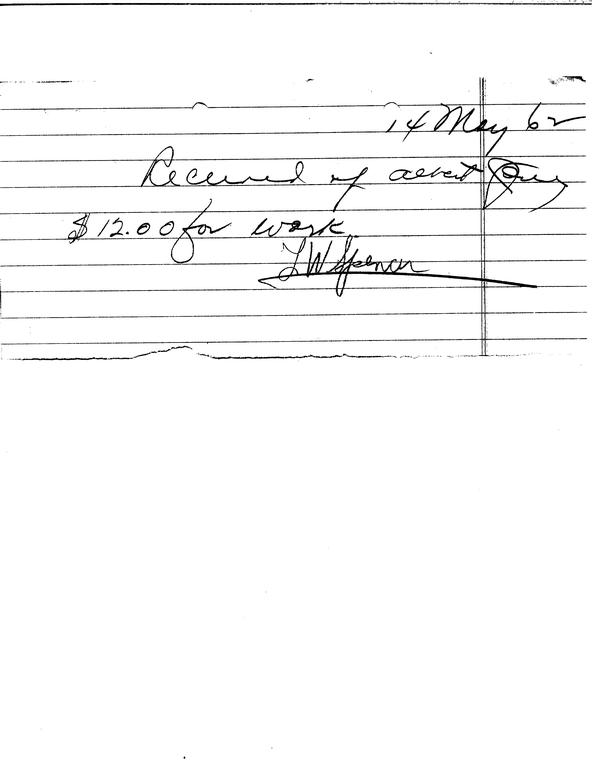 14 May 62
Received of Albert
$12.00 for work
L W Spencer